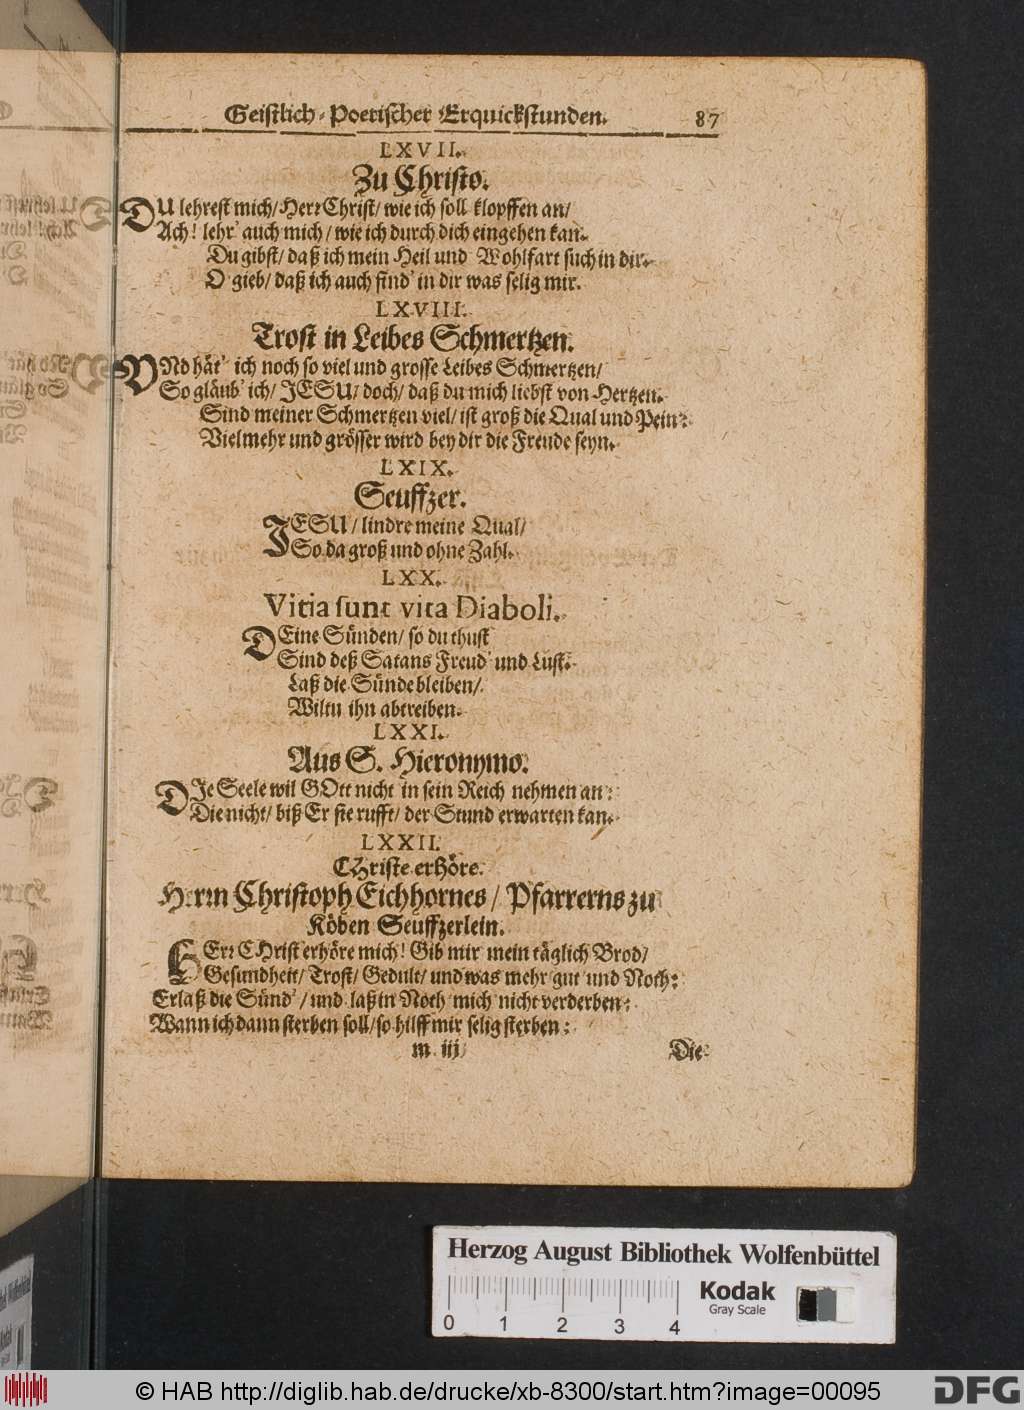 Geistlich-Poetischer Erquickstunden. 87
LXVII.
Zu Christo.
DU lehrest mich/ Herr Christ/ wie ich soll klopffen an/
Ach! lehr' auch mich/ wie ich durch dich eingehen kan.
Du gibst/ daß ich mein Heil und Wohlfart such in dir.
O gieb/ daß ich auch find' in dir was selig mir.
LXVIII.
Trost in Leibes Schmertzen.
UNd hät' ich noch so viel und grosse Leibes Schmertzen/
So gläub' ich/ JESU/ doch/ daß du mich liebst von Hertzen.
Sind meiner Schmertzen viel/ ist groß die Qual und Pein:
Vielmehr und grösser wird bey dir die Freude seyn.
LXIX.
Seuffzer.
JESU/ lindre meine Qual/
So da groß und ohne Zahl.
LXX.
Vitia sunt vita Diaboli.
DEine Sünden/ so du thust
Sind deß Satans Freud' und Lust.
Laß die Sünde bleiben/
Wiltu ihn abtreiben.
LXXI.
Aus S. Hieronymo.
DIe Seele wil GOtt nicht in sein Reich nehmen an:
Die nicht/ biß Er sie rufft/ der Stund erwarten kan.
LXXII.
CHriste erHöre.
Herrn Christoph Eichhornes/ Pfarrerns zu
Köben Seuffzerlein.
HErr CHrist erhöre mich! Gib mir mein täglich Brod/
Gesundheit/ Trost/ Gedult/ und was mehr gut und Noth:
Erlaß die Sünd'/ und laß in Noth mich nicht verderben:
Wann ich dann sterben soll/ so hilff mir selig sterben:
m iij Die
Herzog August Bibliothek Wolfenbüttel
Kodak
Gray Scale
0 1 2 3 4
© HAB http://diglib.hab.de/drucke/xb-8300/start.htm?image=00095
DFG